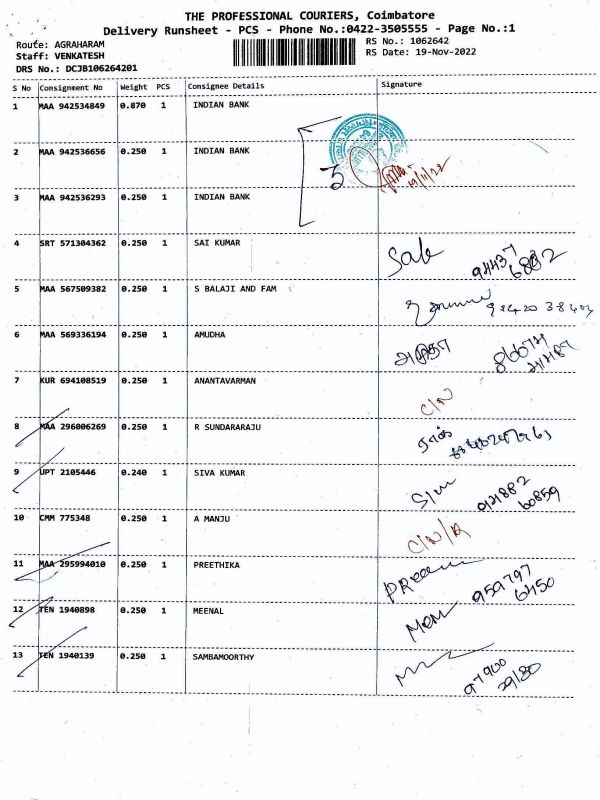 THE PROFESSIONAL COURIERS, Coimbatore
Delivery Runsheet - PCS - Phone No.:0422-3505555 - Page No.:1
Route: AGRAHARAM
RS No.: 1062642
Staff: VENKATESH
RS Date: 19-Nov-2022
DRS No.: DCJB106264201
S No Consignment No Weight PCS Consignee Details Signature
1 MAA 942534849 0.870 1 INDIAN BANK
2 MAA 942536656 0.250 1 INDIAN BANK
3 19/11/22
3 MAA 942536293 0.250 1 INDIAN BANK
4 SRT 571304362 0.250 1 SAI KUMAR
94437
6882
5 MAA 567509382 0.250 1 S BALAJI AND FAM
6 MAA 569336194 0.250 1 AMUDHA
அமுதா
7 KUR 694108519 0.250 1 ANANTAVARMAN
C/N
8 MAA 296006269 0.250 1 R SUNDARARAJU
9 UPT 2105446 0.240 1 SIVA KUMAR
60859
10 CMM 775348 0.250 1 A MANJU
C/N/R
11 MAA 295994010 0.250 1 PREETHIKA
959797
6450
12 TEN 1940898 0.250 1 MEENAL
13 TEN 1940139 0.250 1 SAMBAMOORTHY
97900
29180